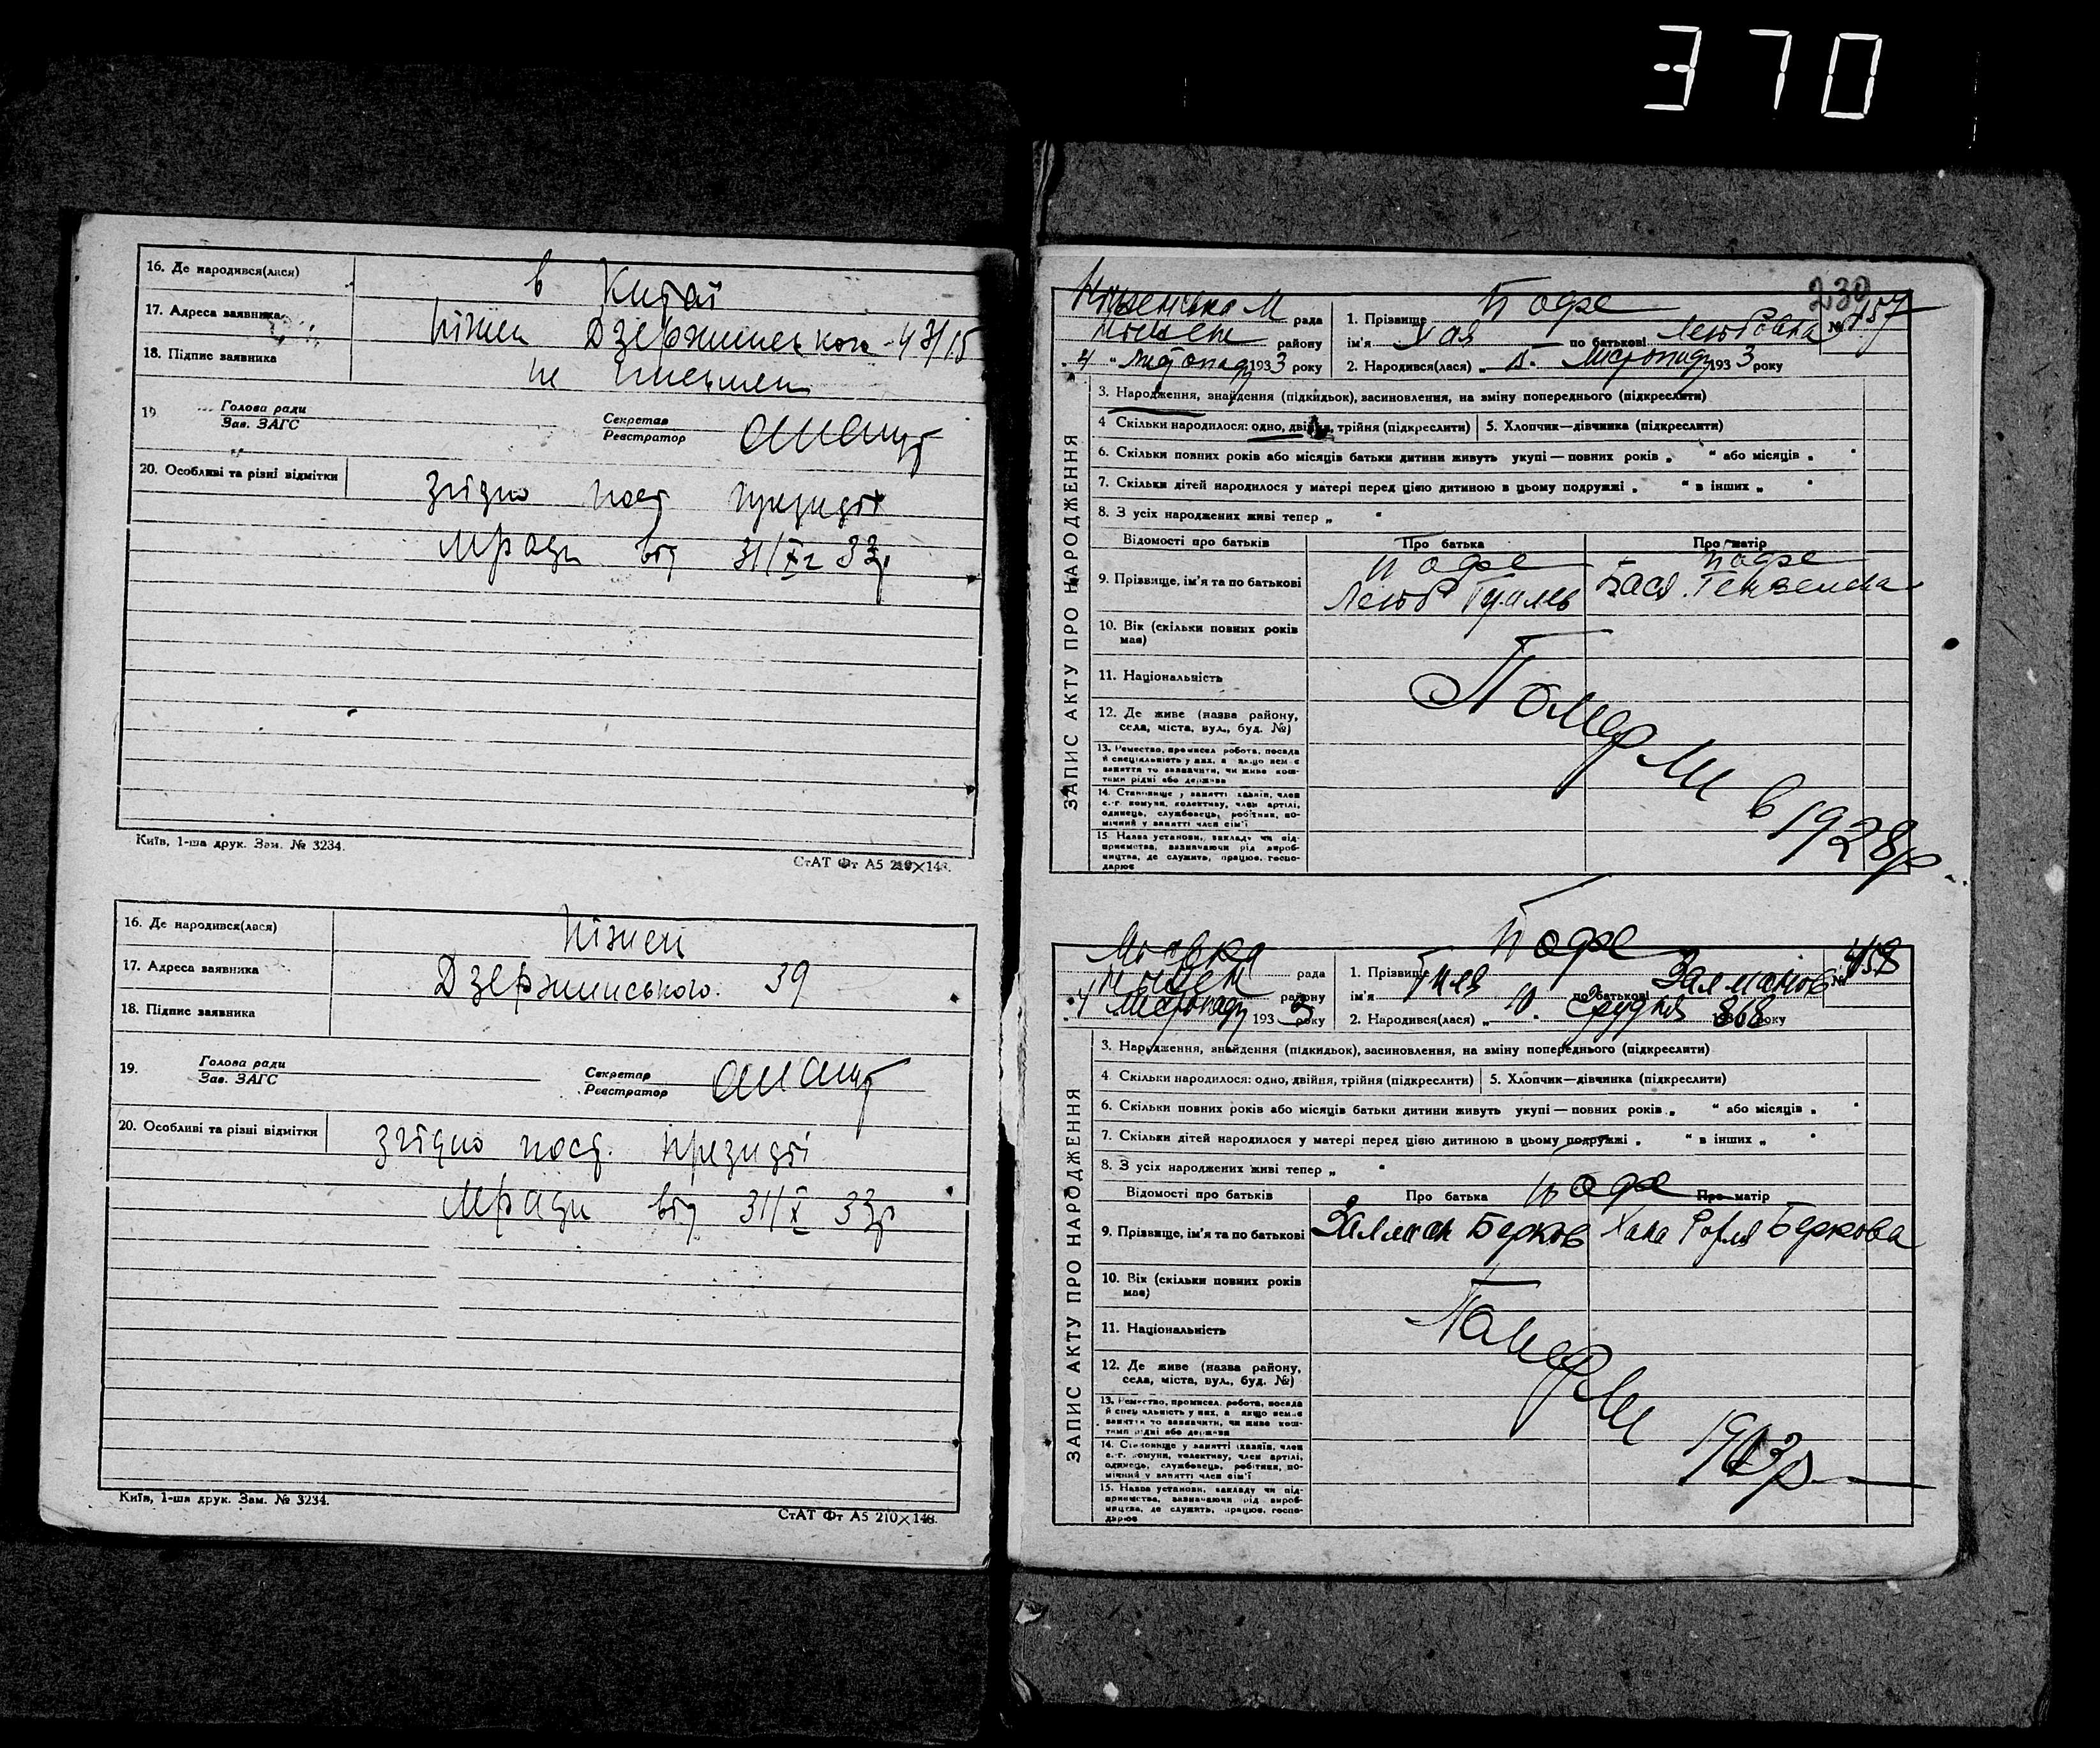 370
16. Де народився(лася) в Китаї
17. Адреса заявника Ніжен Дзержинського 43/15
18. Підпис заявника не письмен
19. Голова ради
Зав. ЗАГС
Секретар
Реєстратор
20. Особливі та різні відмітки згідно пост президії
Мради від 31/X 33р
Київ, 1-ша друк. Зам. № 3234.
СтАТ Фт А5 210×148.
16. Де народився(лася) Ніжен
17. Адреса заявника Дзержинського. 39
18. Підпис заявника
19. Голова ради
Зав. ЗАГС
Секретар
Реєстратор
20. Особливі та різні відмітки згідно пост. президії
Мради від 31/X 33р
Київ, 1-ша друк. Зам. № 3234.
СтАТ Фт А5 210×148.
239
ЗАПИС АКТУ ПРО НАРОДЖЕННЯ
рада 1. Прізвище № 457
району ім'я Хая по батькові
„4 “ листопаду 1933 року 2. Народився(лася) „ листопаду 1933 року
3. Народження, знайдення (підкидьок), засиновлення, на зміну попереднього (підкреслити)
4 Скільки народилося: одно, двійня, трійня (підкреслити) 5. Хлопчик—дівчинка (підкреслити)
6. Скільки повних років або місяців батьки дитини живуть укупі — повних років „ “ або місяців „ “
7. Скільки дітей народилося у матері перед цією дитиною в цьому подружжі „ “ в інших „ “
8. З усіх народжених живі тепер „ “
Відомості про батьків Про батька Про матір
9. Прізвище, ім'я та по батькові Бася
10. Вік (скільки повних років
має)
11. Національність
12. Де живе (назва району,
села, міста, вул., буд. №)
13. Ремество, промисел, робота, посада
й спеціяльність у них, а якщо немає
заняття то зазначити, чи живе кош-
тами рідні або держави
14. Становище у занятті: хазяїн, член
с.-г. комуни, колективу, член артілі,
одинець, службовець, робітник, по-
мічний у занятті член сім'ї
15. Назва установи, закладу чи під-
приємства, зазначаючи рід вироб-
ництва, де служить, працює, госпо-
дарює
Померли в 1928р
ЗАПИС АКТУ ПРО НАРОДЖЕННЯ
рада 1. Прізвище № 458
району ім'я по батькові Залманов
„4 листопаду 1933 року 2. Народився(лася) „10. грудня 868 року
3. Народження, знайдення (підкидьок), засиновлення, на зміну попереднього (підкреслити)
4 Скільки народилося: одно, двійня, трійня (підкреслити) 5. Хлопчик—дівчинка (підкреслити)
6. Скільки повних років або місяців батьки дитини живуть укупі — повних років „ “ або місяців „ “
7. Скільки дітей народилося у матері перед цією дитиною в цьому подружжі „ “ в інших „ “
8. З усіх народжених живі тепер „ “
Відомості про батьків Про батька Про матір
9. Прізвище, ім'я та по батькові Залман Берков Хана Беркова
10. Вік (скільки повних років
має)
11. Національність
12. Де живе (назва району,
села, міста, вул., буд. №)
13. Ремество, промисел, робота, посада
й спеціяльність у них, а якщо немає
заняття то зазначити, чи живе кош-
тами рідні або держави
14. Становище у занятті: хазяїн, член
с.-г. комуни, колективу, член артілі,
одинець, службовець, робітник, по-
мічний у занятті член сім'ї
15. Назва установи, закладу чи під-
приємства, зазначаючи рід вироб-
ництва, де служить, працює, госпо-
дарює
Померли